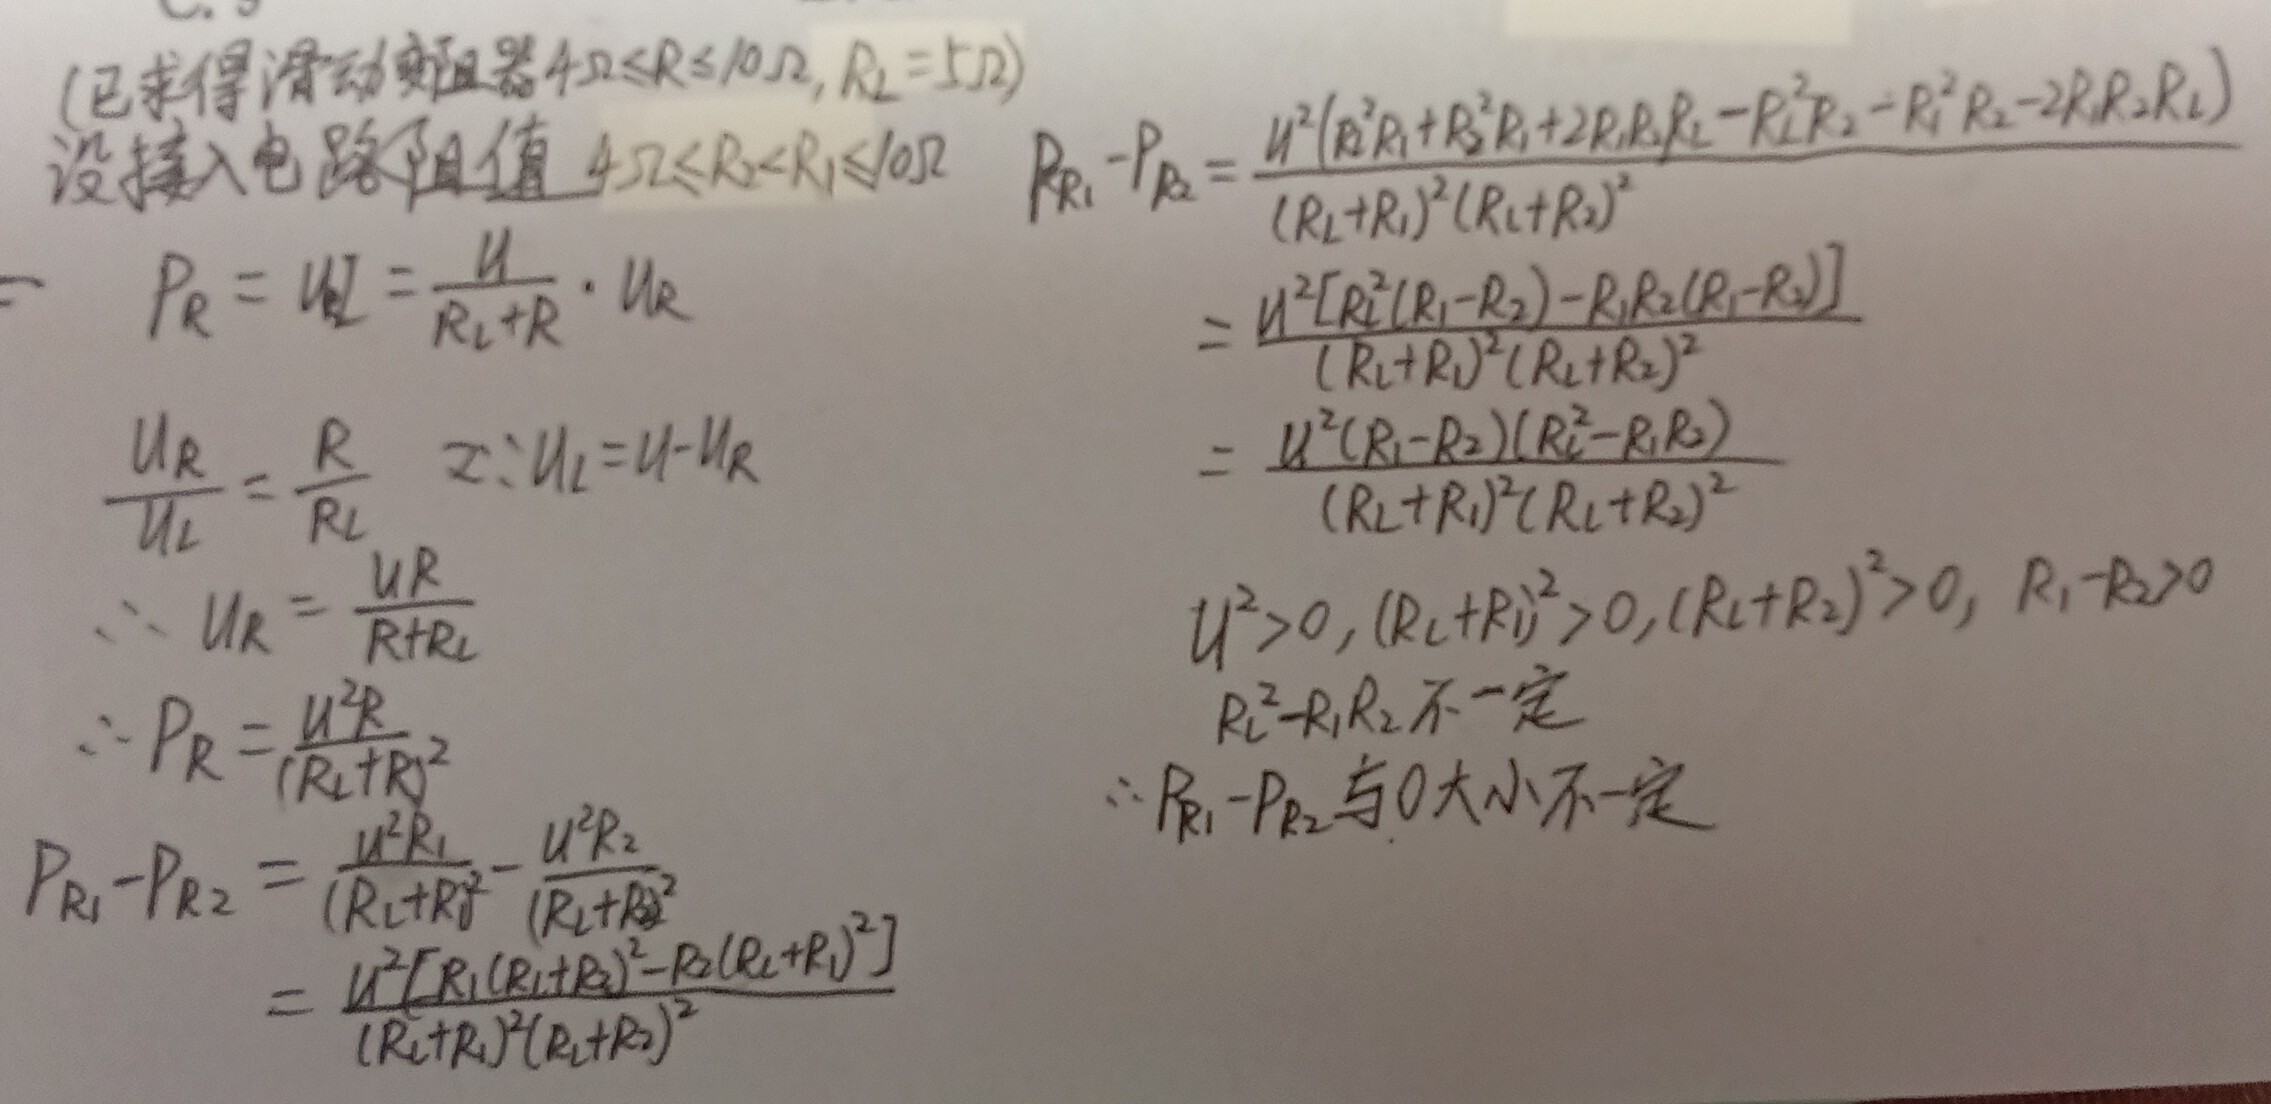 (已求得滑动变阻器4Ω≤R≤10Ω, RL=5Ω)
设接入电路阻值 4Ω≤R2<R1≤10Ω
PR = URI = U/(RL+R) · UR
UR/UL = R/RL 又∵UL=U-UR
∴ UR = UR/(R+RL)
∴ PR = U²R/(RL+R)²
PR1-PR2 = U²R1/(RL+R1)² - U²R2/(RL+R2)²
= U²[R1(RL+R2)²-R2(RL+R1)²]/(RL+R1)²(RL+R2)²
PR1-PR2 = U²(RL²R1+R2²R1+2R1R2RL-RL²R2-R1²R2-2R1R2RL)/(RL+R1)²(RL+R2)²
= U²[RL²(R1-R2)-R1R2(R1-R2)]/(RL+R1)²(RL+R2)²
= U²(R1-R2)(RL²-R1R2)/(RL+R1)²(RL+R2)²
U²>0, (RL+R1)²>0, (RL+R2)²>0, R1-R2>0
RL²-R1R2 不一定
∴ PR1-PR2 与0大小不一定